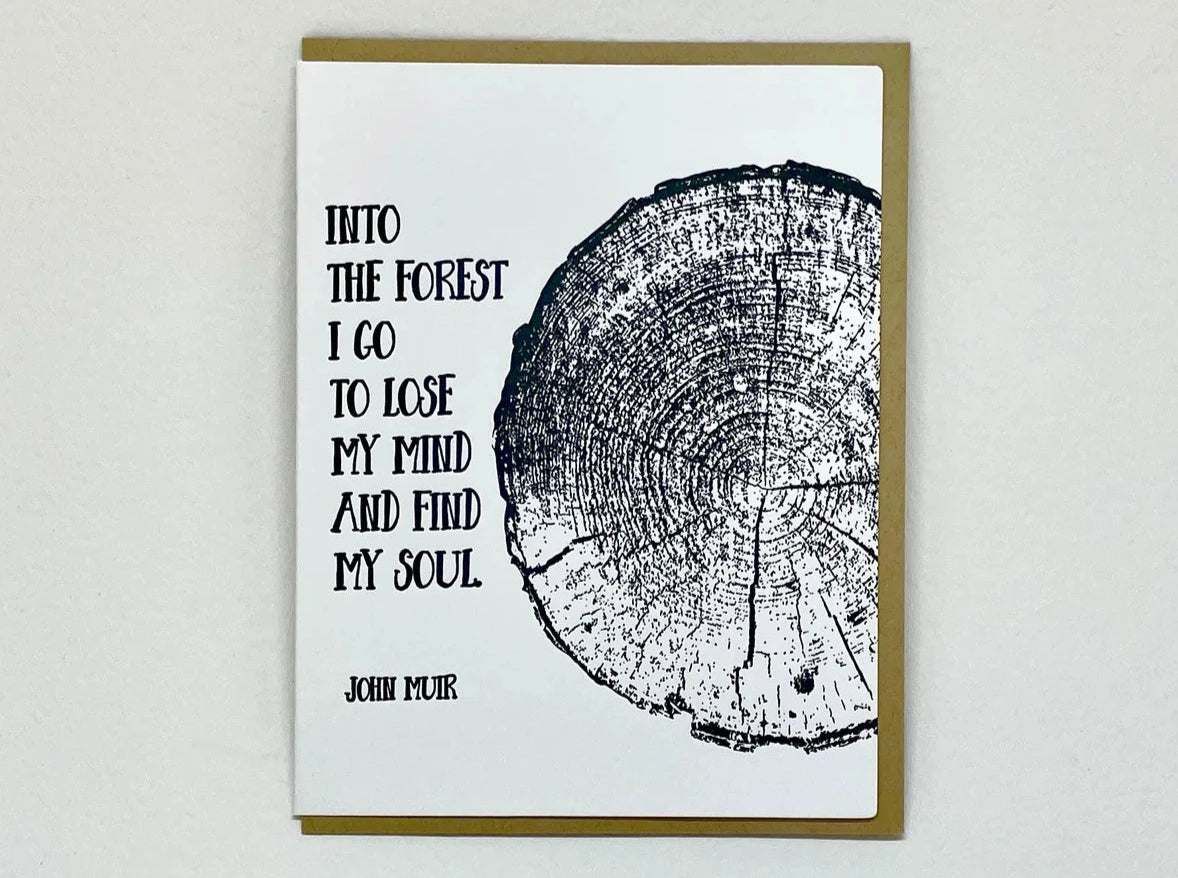 INTO
THE FOREST
I GO
TO LOSE
MY MIND
AND FIND
MY SOUL.
JOHN MUIR